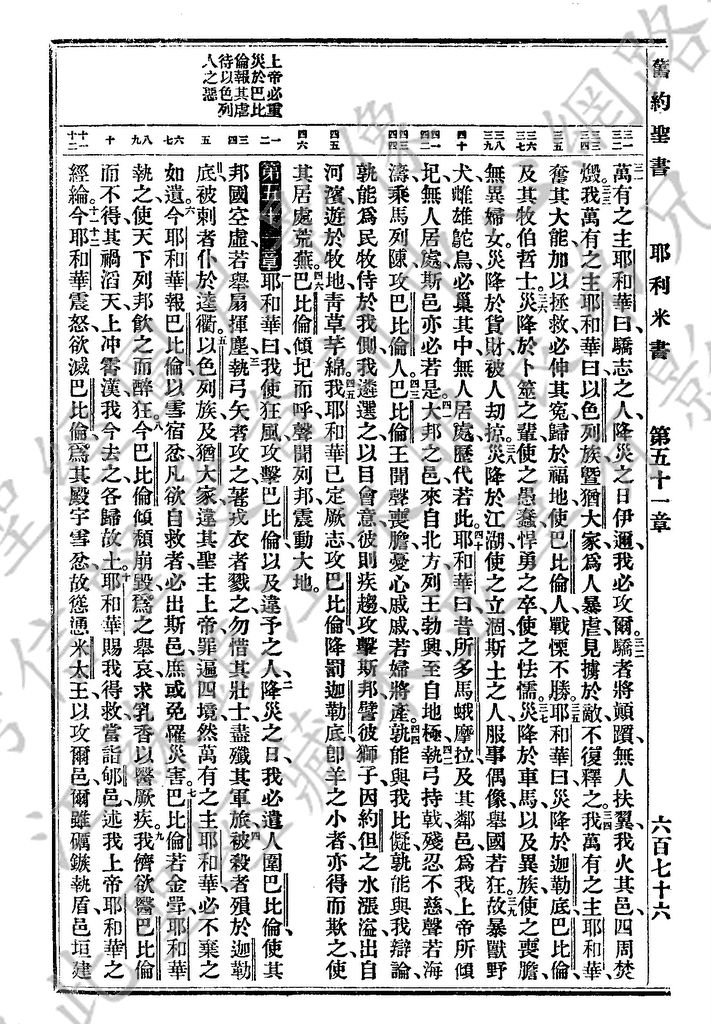 舊約聖書 耶利米書 第五十一章 六百七十六
萬有之主耶和華曰驕志之人降災之日伊邇我必攻爾驕者將顚躓無人扶翼我火其邑四周焚
燬我萬有之主耶和華曰以色列族曁猶大家爲人暴虐見擄於敵不復釋之我萬有之主耶和華
奮其大能加以拯救必伸其寃歸於福地使巴比倫人戰慄不勝耶和華曰災降於迦勒底巴比倫
及其牧伯哲士災降於卜筮之輩使之愚蠢悍勇之卒使之怯懦災降於車馬以及異族使之喪膽
無異婦女災降於貨財被人劫掠災降於江湖使之立涸斯土之人服事偶像舉國若狂故暴獸野
犬雌雄鴕鳥必巢其中無人居處歷代若此耶和華曰昔所多馬蛾摩拉及其鄰邑爲我上帝所傾
圮無人居處斯邑亦必若是大邦之邑來自北方列王勃興至自地極執弓持戟殘忍不慈聲若海
濤乘馬列陳攻巴比倫人巴比倫王聞聲喪膽憂心戚戚若婦將產孰能與我比儗孰能與我辯論
孰能爲民牧侍於我側我遴選之以目會意彼則疾趨攻擊斯邦譬彼獅子因約但之水漲溢出自
河濱遊於牧地靑草芊綿我耶和華已定厥志攻巴比倫降罰迦勒底卽羊之小者亦得而欺之使
其居處荒蕪巴比倫傾圮而呼聲聞列邦震動大地
第五十一章 耶和華曰我使狂風攻擊巴比倫以及違予之人降災之日我必遺人圍巴比倫使其
邦國空虛若舉扇揮塵執弓矢者攻之著戎衣者戮之勿惜其壯士盡殲其軍旅被殺者殞於迦勒
底被刺者仆於逵衢以色列族及猶大家違其聖主上帝罪遍四境然萬有之主耶和華必不棄之
如遺今耶和華報巴比倫以雪宿忿凡欲自救者必出斯邑庶或免罹災害巴比倫若金斝耶和華
執之使天下列邦飮之而醉狂今巴比倫傾頹崩毀爲之舉哀求乳香以醫厥疾我儕欲醫巴比倫
而不得其禍滔天上冲霄漢我今去之各歸故土耶和華賜我得救當詣郇邑述我上帝耶和華之
經綸今耶和華震怒欲滅巴比倫爲其殿宇雪忿故慫慂米太王以攻爾邑爾雖礪鏃執盾邑垣建
上帝必重
災於巴比
倫報其虐
待以色列
人之惡
三一
三二
三三
三四
三五
三六
三七
三八
三九
四十
四一
四二
四三
四四
四五
四六
一
二
三
四
五
六
七
八
九
十
十一
十二